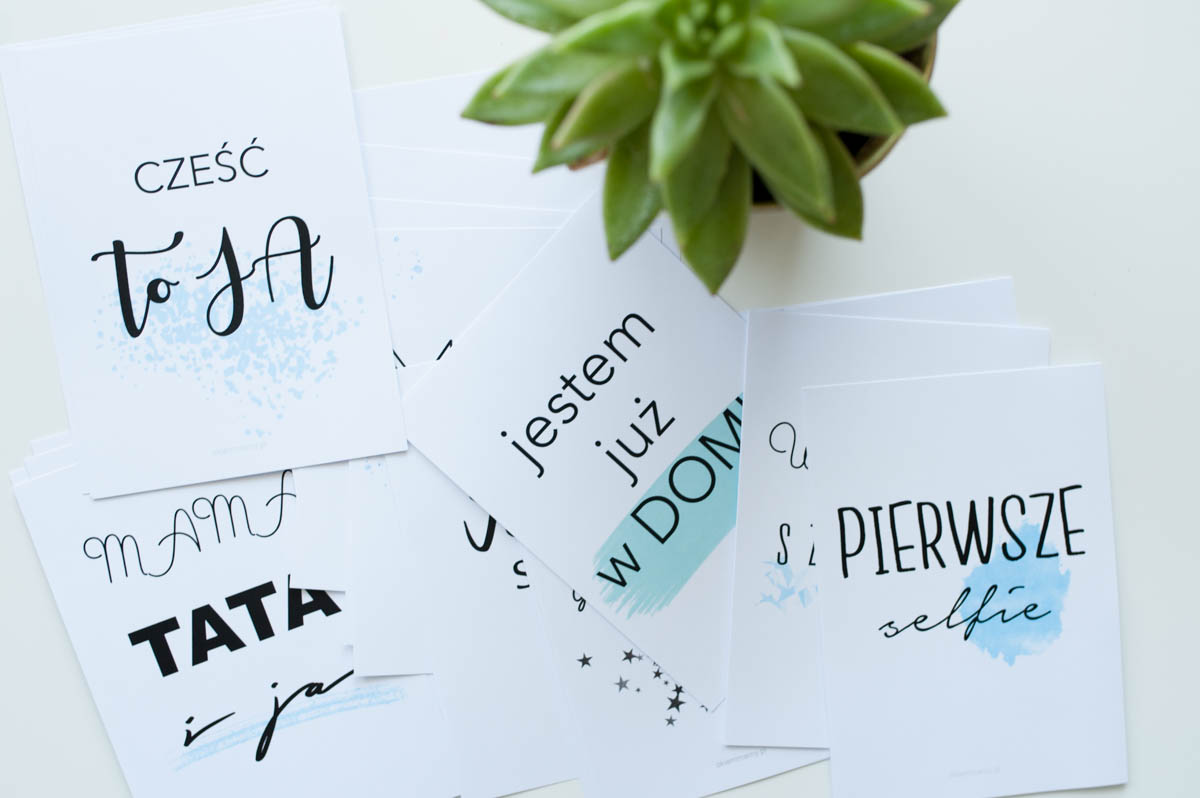 CZEŚĆ
to JA
MAMA
TATA
i ja
jestem
już
w DOMU
PIERWSZE
selfie